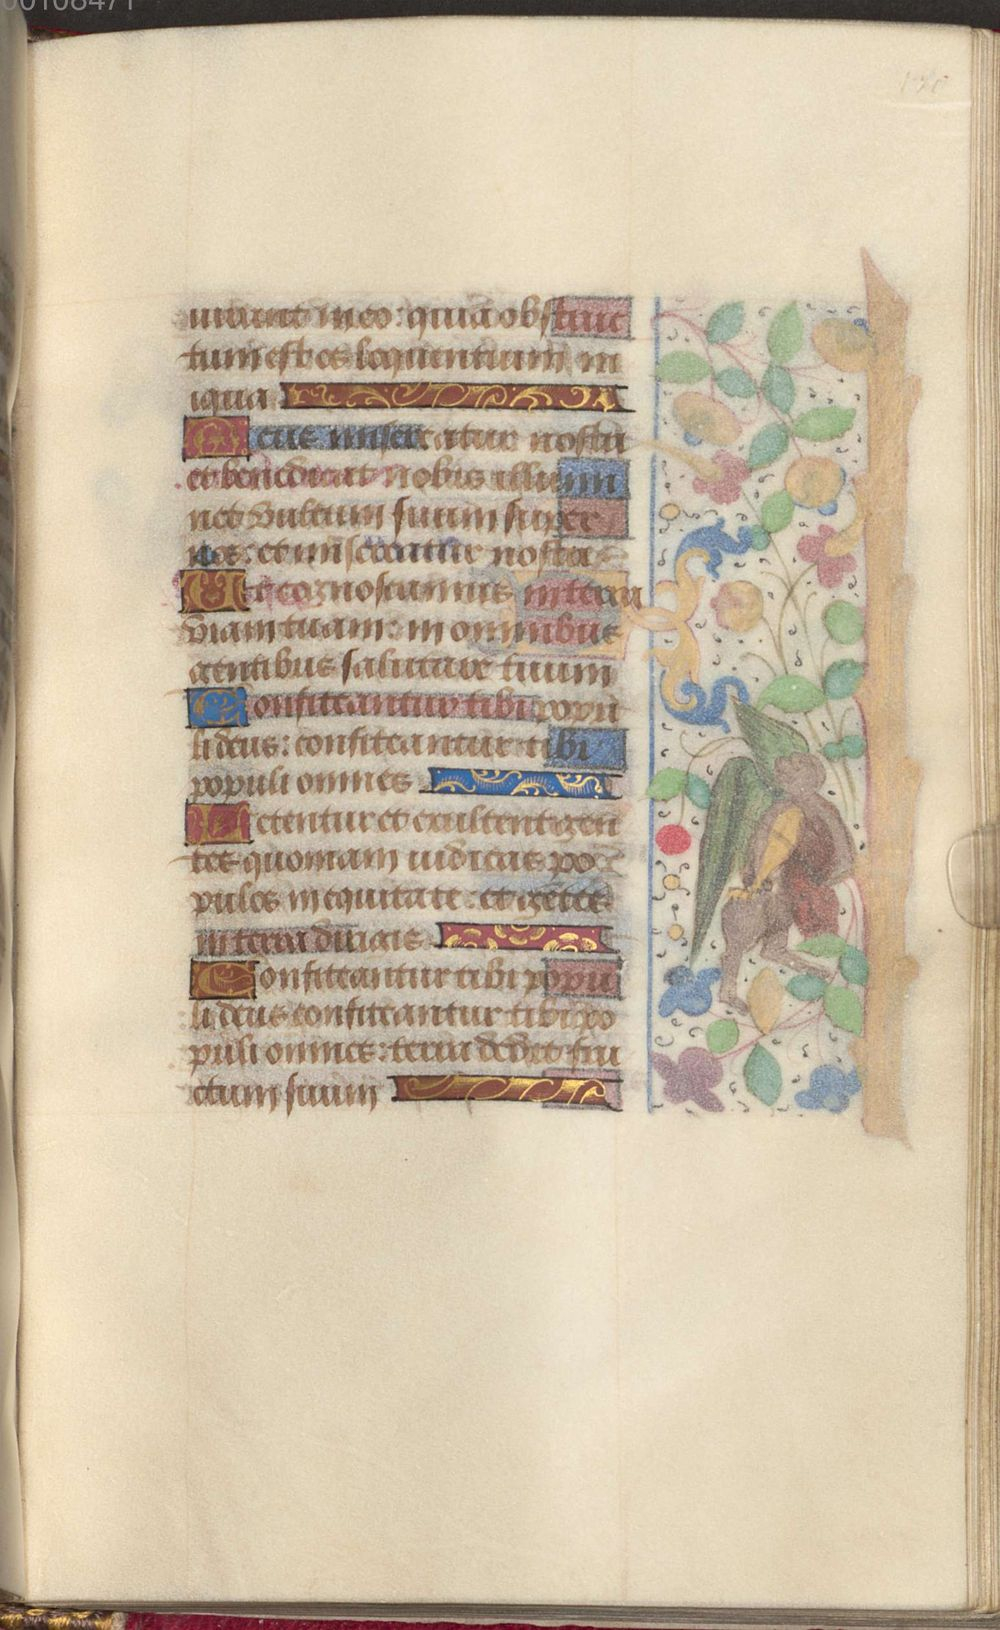 00108471
iurant in eo: quia obstruc
tum est os loquentium in
iqua
Deus misereatur nostri
et benedicat nobis illumi
net vultum suum super
nos: et misereatur nostri
Ut cognoscamus in terra
viam tuam: in omnibus
gentibus salutare tuum
Confiteantur tibi popu
li deus: confiteantur tibi
populi omnes
Letentur et exultent gen
tes quoniam iudicas po
pulos in equitate: et gētes
in terra dirigis
Confiteantur tibi popu
li deus confiteantur tibi po
puli omnes: terra dedit fru
ctum suum